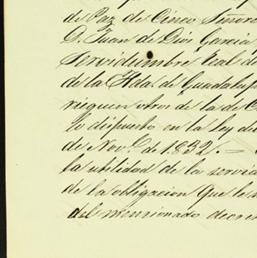 de Paz de Cinco Señore
D. Juan de Dios Garcia
Servidumbre Real de
de la Hda. de Guadalup
riegan otros de la de C
lo dispuesto en la ley de
de Nov.e de 1832. —
la utilidad de la servid
de la obligacion que le
del mencionado decre